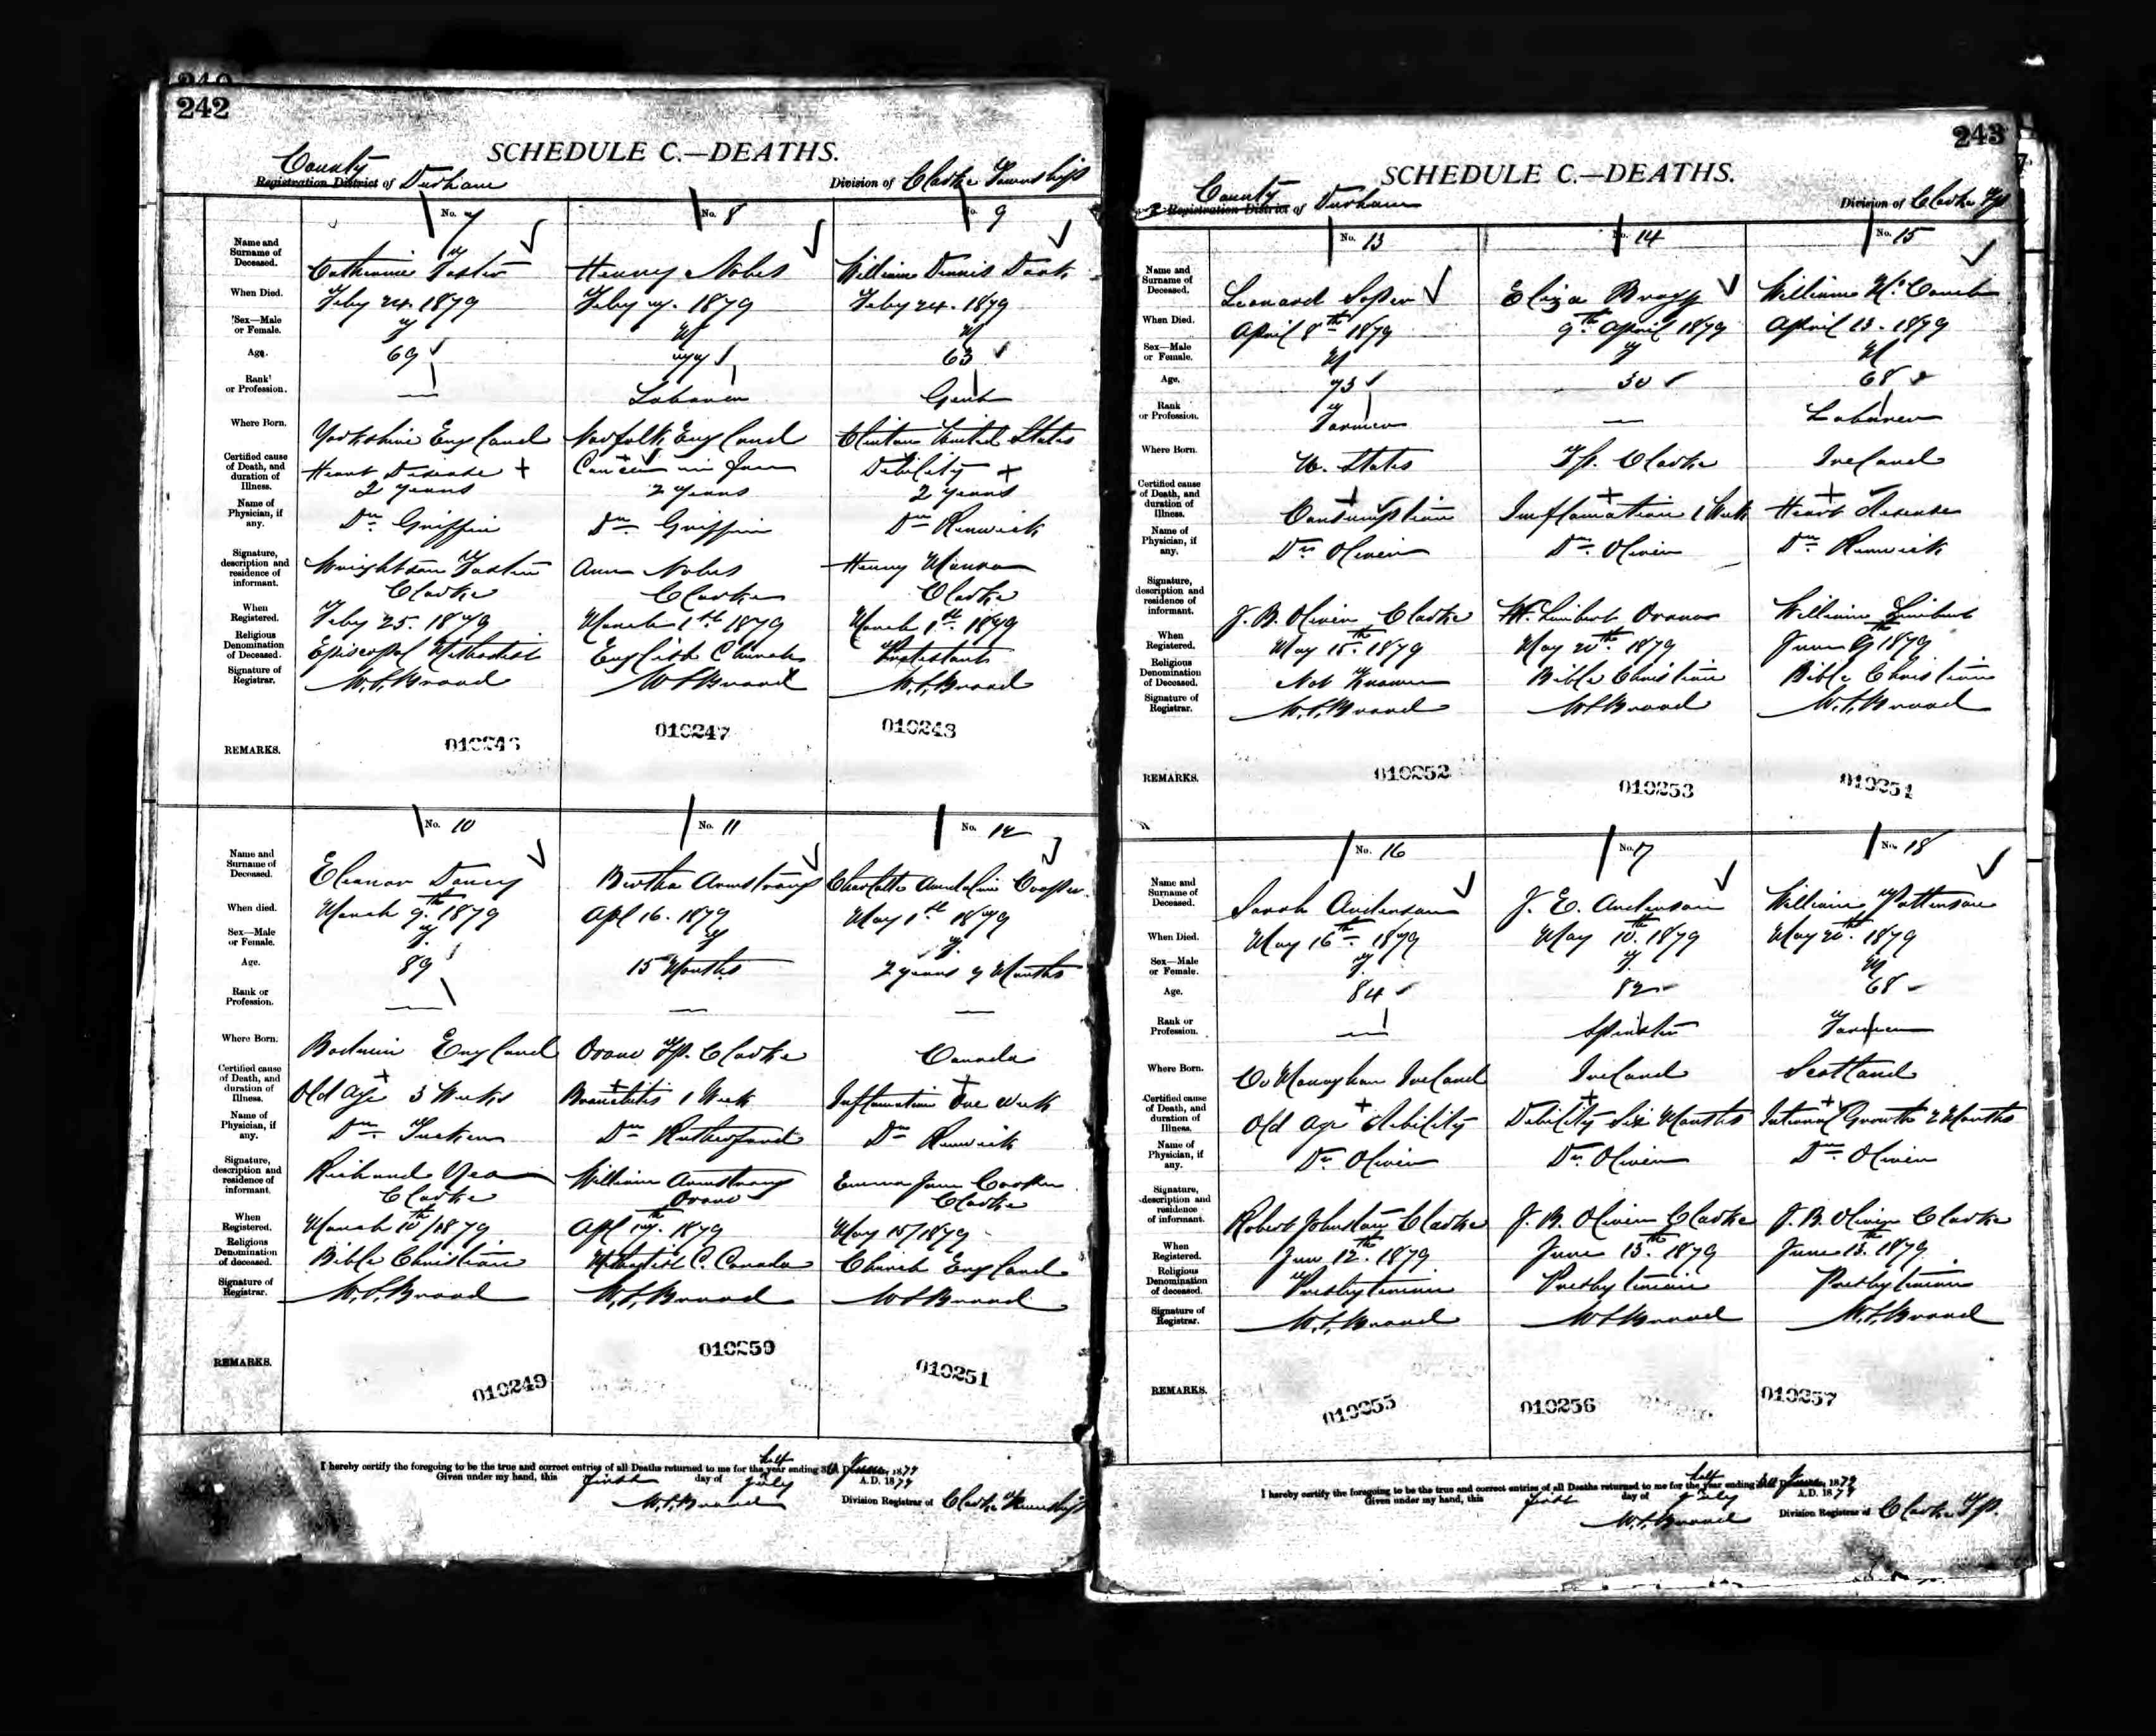 242
SCHEDULE C.—DEATHS.
County
Registration District of Durham
Division of Clarke Township
No. 7
No. 8
No. 9
Name and Surname of Deceased.
Catherine Foster
Henry Nobes
William Dennis
When Died.
Feby 24. 1879
Feby 7. 1879
Feby 24. 1879
Sex—Male or Female.
F
M
M
Age.
69
77
63
Rank or Profession.
—
Laborer
Gent
Where Born.
Yorkshire England
Norfolk England
Clinton United States
Certified cause of Death, and duration of Illness.
Heart Disease
2 years
Cancer in
2 years
Debility
2 years
Name of Physician, if any.
Dr. Griffin
Dr. Griffin
Dr Renwick
Signature, description and residence of informant.
Wrightson Foster
Clarke
Ann Nobes
Clarke
Henry Munro
Clarke
When Registered.
Feby 25. 1879
March 1st 1879
March 1st 1879
Religious Denomination of Deceased.
Episcopal Methodist
English Church
Protestant
Signature of Registrar.
REMARKS.
010247
No. 10
No. 11
No. 12
Name and Surname of Deceased.
Eleanor
Bertha Armstrong
Charlotte Cooper
When died.
March 9th. 1879
Apl 16. 1879
May 1st 1879
Sex—Male or Female.
F.
F
F.
Age.
89
15 Months
2 years 7 Months
Rank or Profession.
—
—
—
Where Born.
Bodmin England
Orono Tp. Clarke
Canada
Certified cause of Death, and duration of Illness.
Old Age 3 Weeks
Bronchitis 1 Week
Inflamation One Week
Name of Physician, if any.
Dr. Tucker
Dr Rutherford
Dr Renwick
Signature, description and residence of informant.
Richard Yeo
Clarke
William Armstrong
Orono
Emma Jane Cooper
Clarke
When Registered.
March 10th/1879.
Apl 17th. 1879
May 15/1879
Religious Denomination of deceased.
Bible Christian
Methodist C. Canada
Church England
Signature of Registrar.
REMARKS.
010249
010250
010251
I hereby certify the foregoing to be the true and correct entries of all Deaths returned to me for the half year ending June, 1879
Given under my hand, this first day of July A.D. 1879
Division Registrar of Clarke Township
243
SCHEDULE C.—DEATHS.
County
Registration District of Durham
Division of Clarke Tp
No. 13
No. 14
No. 15
Name and Surname of Deceased.
Leonard Soper
Eliza Bragg
William
When Died.
April 8th 1879
9th April 1879
April 13. 1879
Sex—Male or Female.
M
F
M
Age.
73
30
68
Rank or Profession.
Farmer
—
Laborer
Where Born.
U. States
Tp. Clarke
Ireland
Certified cause of Death, and duration of Illness.
Consumption
Inflamation 1 Week
Heart Disease
Name of Physician, if any.
Dr. Oliver
Dr. Oliver
Dr. Renwick
Signature, description and residence of informant.
J. B. Oliver Clarke
W. Limbert Orono
William Limbert
When Registered.
May 15th. 1879
May 20th. 1879
June 9th 1879
Religious Denomination of Deceased.
Not Known
Bible Christian
Bible Christian
Signature of Registrar.
REMARKS.
010252
010253
010254
No. 16
No. 17
No. 18
Name and Surname of Deceased.
Sarah Anderson
J. E. Anderson
William Patterson
When Died.
May 16th. 1879
May 10th. 1879
May 20th. 1879
Sex—Male or Female.
F.
F.
M
Age.
84
82
68
Rank or Profession.
—
Spinster
Farmer
Where Born.
Co Monaghan Ireland
Ireland
Scotland
Certified cause of Death, and duration of Illness.
Old Age Debility
Debility Six Months
Internal Growth 2 Months
Name of Physician, if any.
Dr. Oliver
Dr. Oliver
Dr. Oliver
Signature, description and residence of informant.
Robert Johnston Clarke
J. B. Oliver Clarke
J. B. Oliver Clarke
When Registered.
June 12th. 1879
June 13th. 1879
June 13th. 1879
Religious Denomination of deceased.
Presbyterian
Presbyterian
Presbyterian
Signature of Registrar.
REMARKS.
010255
010256
010257
I hereby certify the foregoing to be the true and correct entries of all Deaths returned to me for the half year ending June, 1879
Given under my hand, this first day of July A.D. 1879
Division Registrar of Clarke Tp.